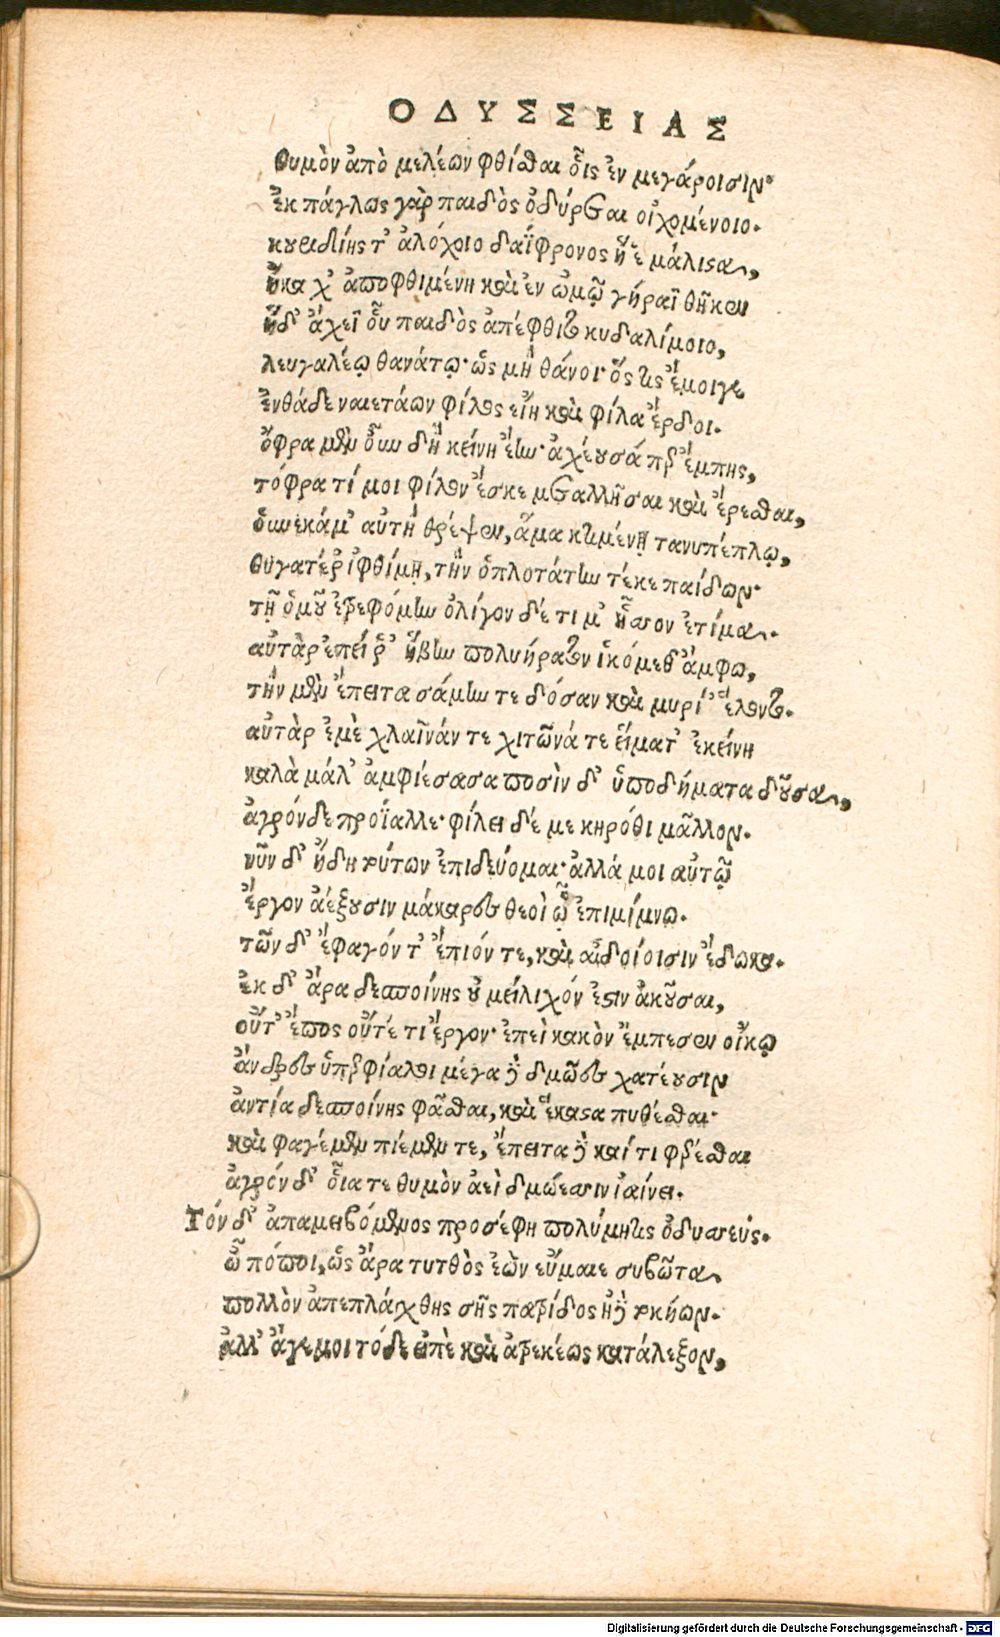 ΟΔΥΣΣΕΙΑΣ
θυμὸν ἀπὸ μελέων φθίσθαι οἷς ἐν μεγάροισιν·
ἐκπάγλως γὰρ παιδὸς ὀδύρεται οἰχομένοιο·
κουριδίης τ' ἀλόχοιο δαΐφρονος ἥ ἑ μάλιστα,
ἤκαχ' ἀποφθιμένη καὶ ἐν ὠμῷ γήραϊ θῆκεν
ἡ δ' ἄχεϊ οὗ παιδὸς ἀπέφθιτο κυδαλίμοιο,
λευγαλέῳ θανάτῳ· ὡς μὴ θάνοι ὅς τις ἔμοιγε
ἐνθάδε ναιετάων φίλος εἴη καὶ φίλα ἔρδοι.
ὄφρα μὲν οὖν δὴ κείνη ἔην· ἀχέουσά περ ἔμπης,
τόφρα τί μοι φίλον ἔσκε μεταλλῆσαι καὶ ἔρεσθαι,
οὕνεκά μ' αὐτὴ θρέψεν, ἅμα κτιμένῃ τανυπέπλῳ,
θυγατέρ' ἰφθίμῃ, τὴν ὁπλοτάτην τέκε παίδων·
τῇ ὁμοῦ ἐτρεφόμην ὀλίγον δέ τι μ' ἧσσον ἐτίμα.
αὐτὰρ ἐπεί ῥ' ἥβην πολυήρατον ἱκόμεθ' ἄμφω,
τὴν μὲν ἔπειτα σάμην τε δόσαν καὶ μυρί' ἕλοντο.
αὐτὰρ ἐμὲ χλαῖνάν τε χιτῶνά τε εἵματ' ἐκείνη
καλὰ μάλ' ἀμφιέσασα ποσὶν δ' ὑποδήματα δοῦσα,
ἀγρόνδε προΐαλλε· φίλει δέ με κηρόθι μᾶλλον.
νῦν δ' ἤδη τούτων ἐπιδεύομαι· ἀλλά μοι αὐτῷ
ἔργον ἀέξουσιν μάκαρες θεοὶ ᾧ ἐπιμίμνω.
τῶν δ' ἔφαγόν τ' ἔπιόν τε, καὶ αἰδοίοισιν ἔδωκα.
ἐκ δ' ἄρα δεσποίνης οὐ μείλιχόν ἐστιν ἀκοῦσαι,
οὔτ' ἔπος οὔτέ τι ἔργον· ἐπεὶ κακὸν ἔμπεσεν οἴκῳ
ἄνδρες ὑπερφίαλοι μέγα δὲ δμῶες χατέουσιν
ἀντία δεσποίνης φᾶσθαι, καὶ ἕκαστα πυθέσθαι·
καὶ φαγέμεν πιέμεν τε, ἔπειτα δὲ καί τι φέρεσθαι
ἀγρόνδ' οἷα τε θυμὸν ἀεὶ δμώεσσιν ἰαίνει.
Τὸν δ' ἀπαμειβόμενος προσέφη πολύμητις ὀδυσσεύς.
ὢ πόποι, ὡς ἄρα τυτθὸς ἐὼν εὔμαιε συβῶτα
πολλὸν ἀπεπλάγχθης σῆς πατρίδος ἠδὲ τοκήων.
ἀλλ' ἄγε μοι τόδε εἰπὲ καὶ ἀτρεκέως κατάλεξον,
Digitalisierung gefördert durch die Deutsche Forschungsgemeinschaft - DFG